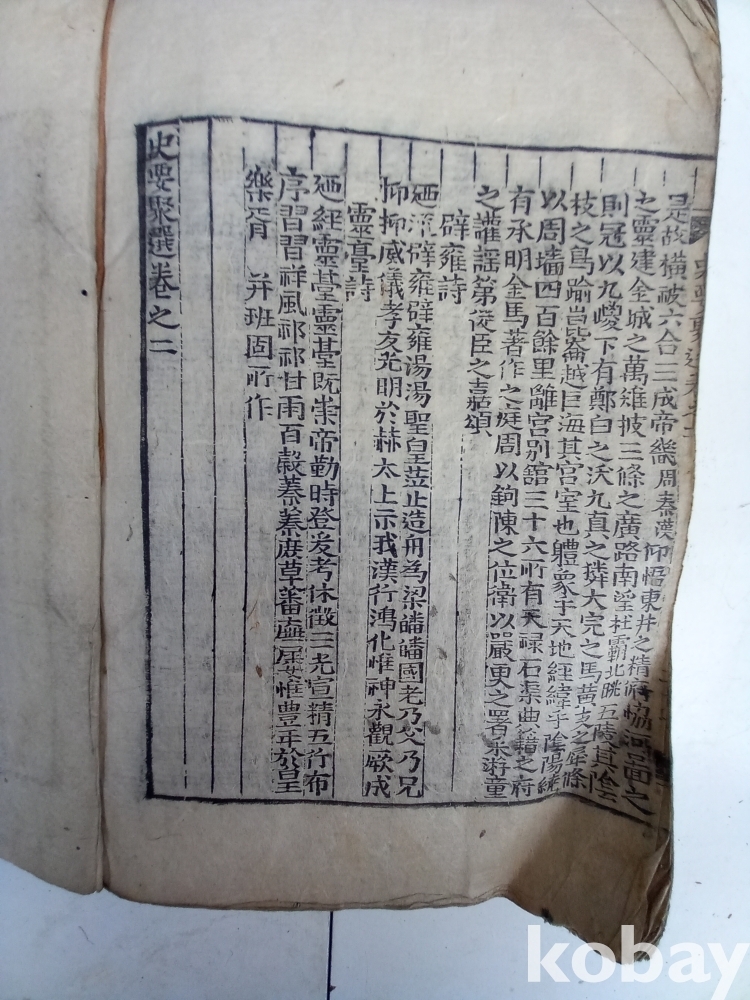 是故橫被六合三成帝畿周秦漢仰悟東井之精俯協河圖之
之靈建金城之萬雉披三條之廣路南望杜霸北眺五陵其陰
則冠以九嵕下有鄭白之沃九真之獜大宛之馬黃支之犀條
枝之鳥踰崑崙越巨海其宮室也體象乎天地經緯乎陰陽繞
以周墻四百餘里離宮別舘三十六所有天祿石渠典籍之府
有承明金馬著作之庭周以鉤陳之位衛以嚴更之署采游童
之讙謠第從臣之嘉頌
辟雍詩
廼流辟雍辟雍湯湯聖皇莅止造舟爲梁皤皤國老乃父乃兄
抑抑威儀孝友光明於赫太上示我漢行鴻化惟神永觀厥成
靈臺詩
廼經靈䑓靈䑓旣崇帝勤時登爰考休徵三光宣精五行布
序習習祥風祁祁甘雨百穀蓁蓁庶草蕃廡屢惟豊年於皇
樂胥 幷班固所作
史要聚選卷之二
kobay